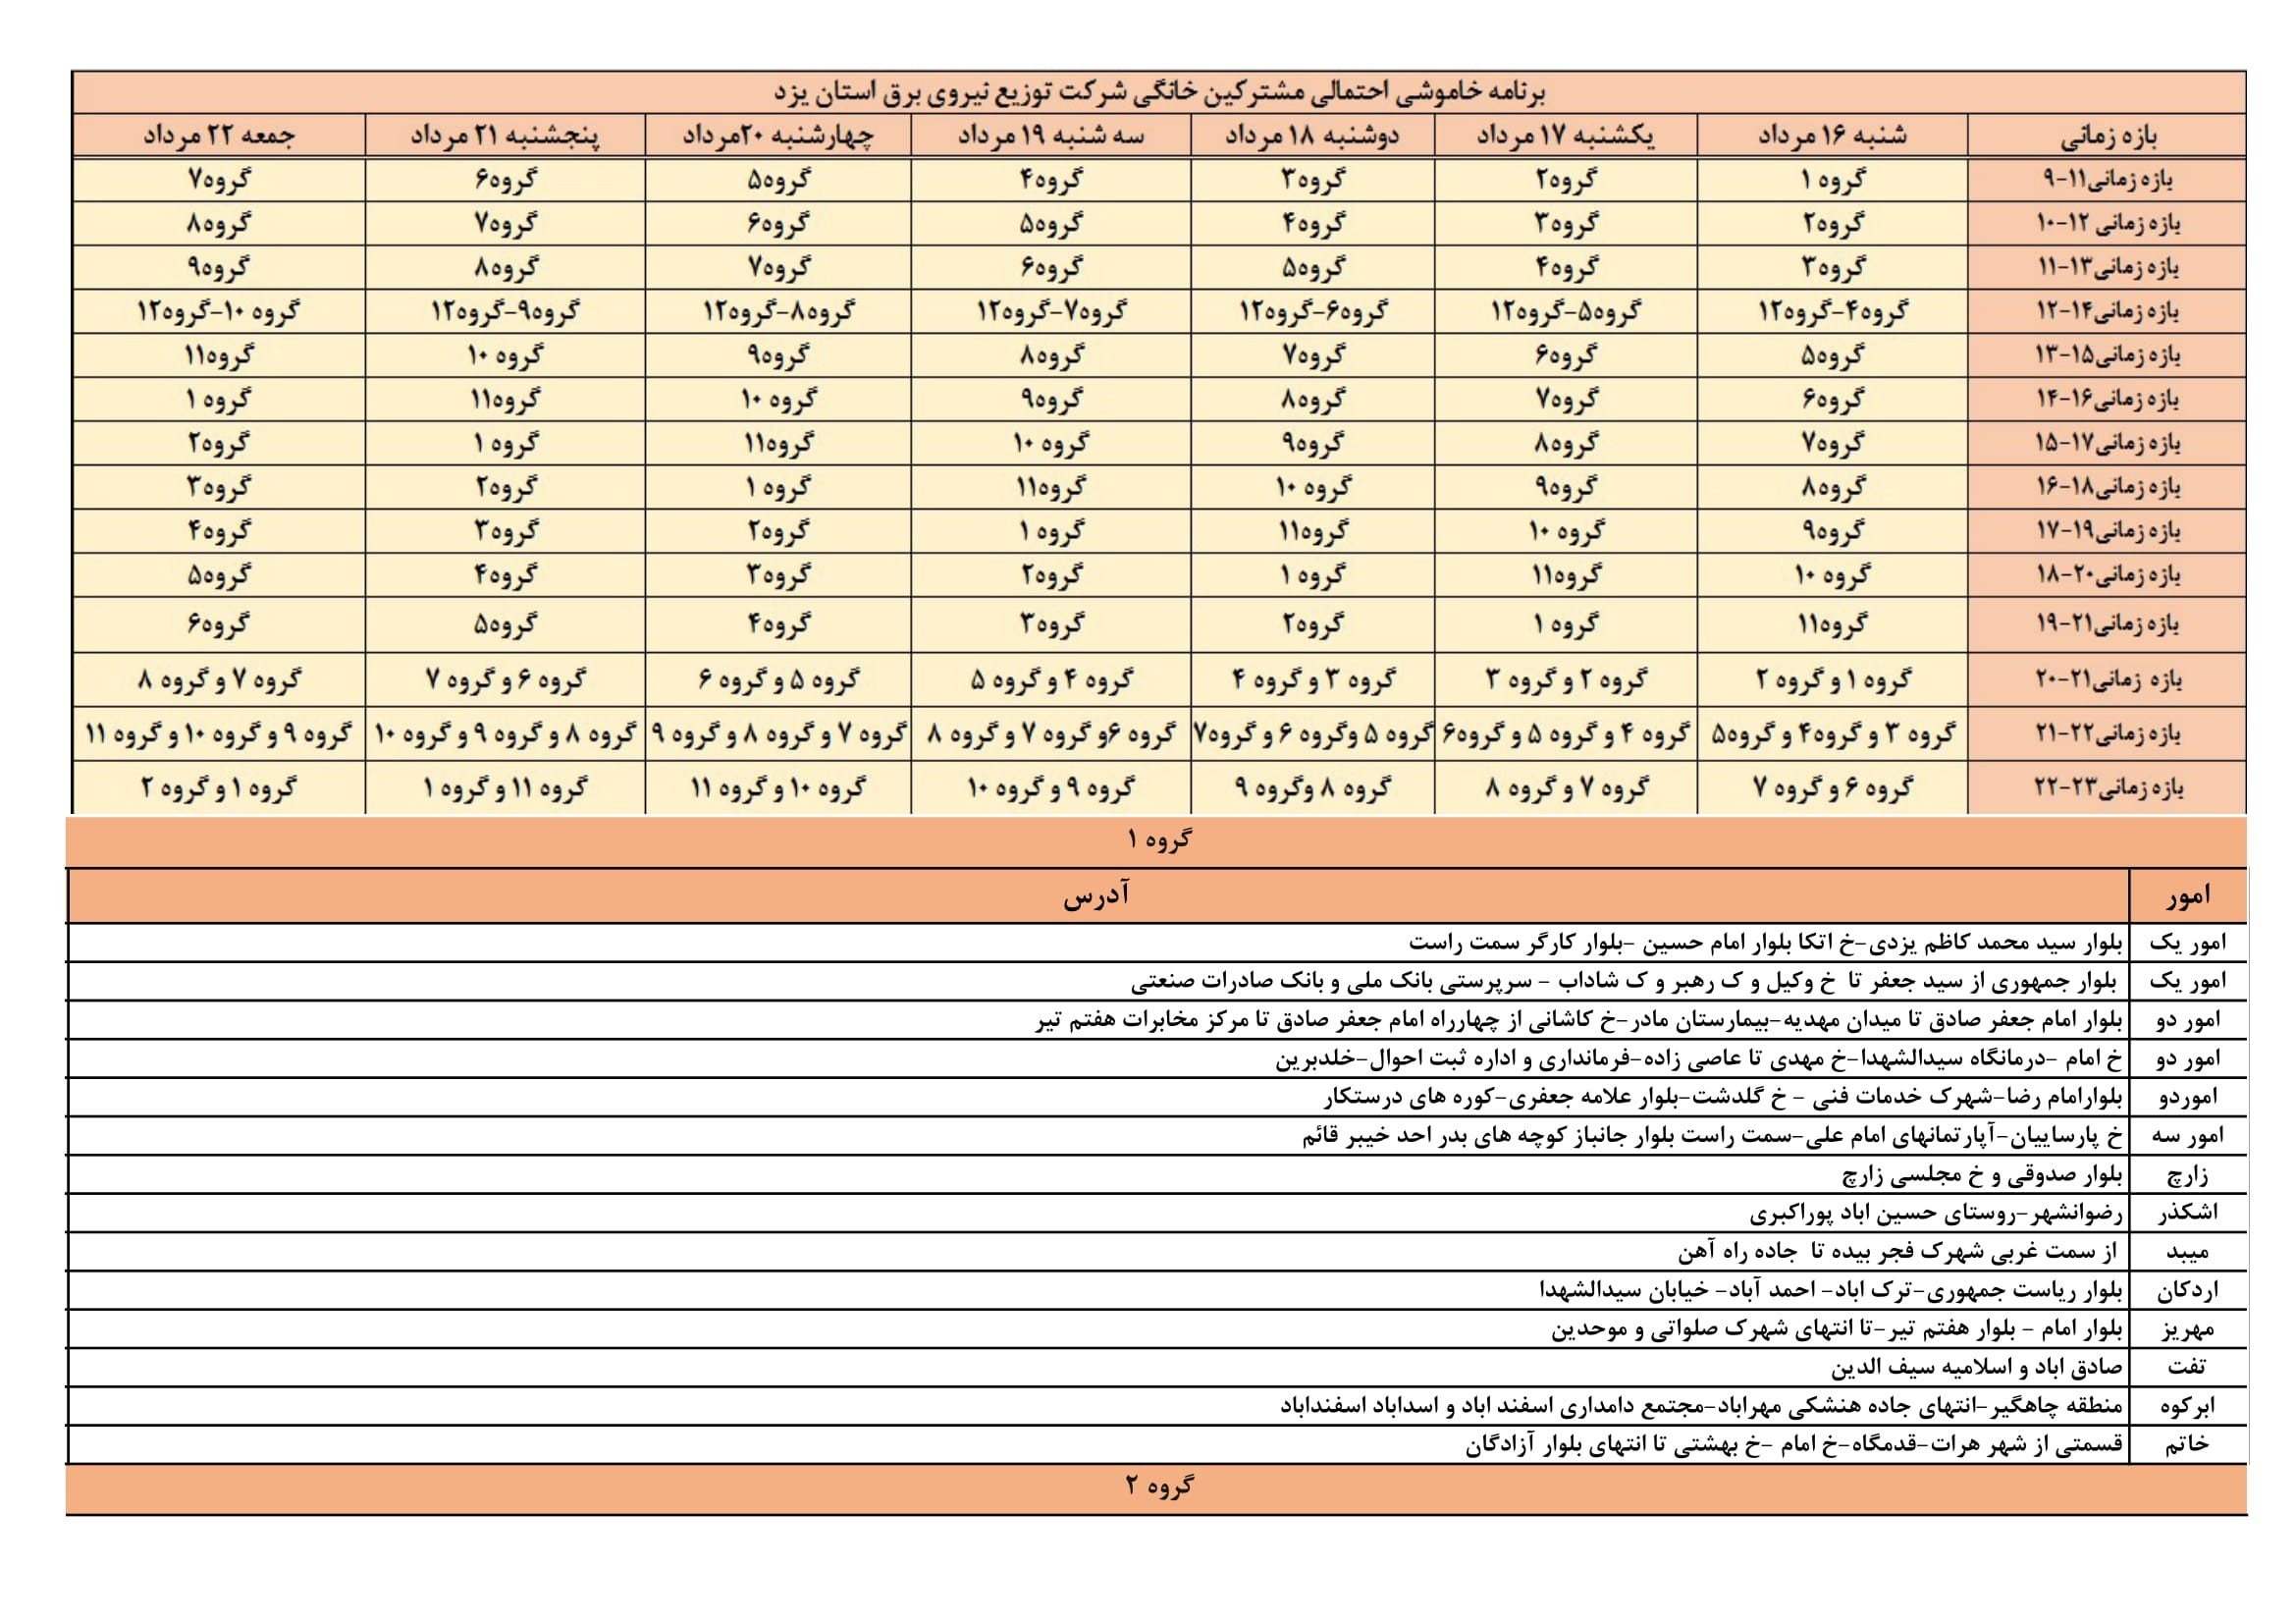 برنامه خاموشی احتمالی مشترکین خانگی شرکت توزیع نیروی برق استان یزد
بازه زمانی شنبه ۱۶ مرداد یکشنبه ۱۷ مرداد دوشنبه ۱۸ مرداد سه شنبه ۱۹ مرداد چهارشنبه ۲۰مرداد پنجشنبه ۲۱ مرداد جمعه ۲۲ مرداد
بازه زمانی۱۱-۹ گروه ۱ گروه۲ گروه۳ گروه۴ گروه۵ گروه۶ گروه۷
بازه زمانی ۱۲-۱۰ گروه۲ گروه۳ گروه۴ گروه۵ گروه۶ گروه۷ گروه۸
بازه زمانی۱۳-۱۱ گروه۳ گروه۴ گروه۵ گروه۶ گروه۷ گروه۸ گروه۹
بازه زمانی۱۴-۱۲ گروه۴-گروه۱۲ گروه۵-گروه۱۲ گروه۶-گروه۱۲ گروه۷-گروه۱۲ گروه۸-گروه۱۲ گروه۹-گروه۱۲ گروه ۱۰-گروه۱۲
بازه زمانی۱۵-۱۳ گروه۵ گروه۶ گروه۷ گروه۸ گروه۹ گروه ۱۰ گروه۱۱
بازه زمانی۱۶-۱۴ گروه۶ گروه۷ گروه۸ گروه۹ گروه ۱۰ گروه۱۱ گروه ۱
بازه زمانی۱۷-۱۵ گروه۷ گروه۸ گروه۹ گروه ۱۰ گروه۱۱ گروه ۱ گروه۲
بازه زمانی۱۸-۱۶ گروه۸ گروه۹ گروه ۱۰ گروه۱۱ گروه ۱ گروه۲ گروه۳
بازه زمانی۱۹-۱۷ گروه۹ گروه ۱۰ گروه۱۱ گروه ۱ گروه۲ گروه۳ گروه۴
بازه زمانی۲۰-۱۸ گروه ۱۰ گروه۱۱ گروه ۱ گروه۲ گروه۳ گروه۴ گروه۵
بازه زمانی۲۱-۱۹ گروه۱۱ گروه ۱ گروه۲ گروه۳ گروه۴ گروه۵ گروه۶
بازه زمانی۲۱-۲۰ گروه ۱ و گروه ۲ گروه ۲ و گروه ۳ گروه ۳ و گروه ۴ گروه ۴ و گروه ۵ گروه ۵ و گروه ۶ گروه ۶ و گروه ۷ گروه ۷ و گروه ۸
بازه زمانی۲۲-۲۱ گروه ۳ و گروه۴ و گروه۵ گروه ۴ و گروه ۵ و گروه۶ گروه ۵ وگروه ۶ و گروه۷ گروه ۶و گروه ۷ و گروه ۸ گروه ۷ و گروه ۸ و گروه ۹ گروه ۸ و گروه ۹ و گروه ۱۰ گروه ۹ و گروه ۱۰ و گروه ۱۱
بازه زمانی۲۳-۲۲ گروه ۶ و گروه ۷ گروه ۷ و گروه ۸ گروه ۸ وگروه ۹ گروه ۹ و گروه ۱۰ گروه ۱۰ و گروه ۱۱ گروه ۱۱ و گروه ۱ گروه ۱ و گروه ۲
گروه ۱
امور آدرس
امور یک بلوار سید محمد کاظم یزدی-خ اتکا بلوار امام حسین -بلوار کارگر سمت راست
امور یک بلوار جمهوری از سید جعفر تا خ وکیل و ک رهبر و ک شاداب - سرپرستی بانک ملی و بانک صادرات صنعتی
امور دو بلوار امام جعفر صادق تا میدان مهدیه-بیمارستان مادر-خ کاشانی از چهارراه امام جعفر صادق تا مرکز مخابرات هفتم تیر
امور دو خ امام -درمانگاه سیدالشهدا-خ مهدی تا عاصی زاده-فرمانداری و اداره ثبت احوال-خلدبرین
اموردو بلوارامام رضا-شهرک خدمات فنی - خ گلدشت-بلوار علامه جعفری-کوره های درستکار
امور سه خ پارساییان-آپارتمانهای امام علی-سمت راست بلوار جانباز کوچه های بدر احد خیبر قائم
زارچ بلوار صدوقی و خ مجلسی زارچ
اشکذر رضوانشهر-روستای حسین اباد پوراکبری
میبد از سمت غربی شهرک فجر بیده تا جاده راه آهن
اردکان بلوار ریاست جمهوری-ترک اباد- احمد آباد- خیابان سیدالشهدا
مهریز بلوار امام - بلوار هفتم تیر-تا انتهای شهرک صلواتی و موحدین
تفت صادق اباد و اسلامیه سیف الدین
ابرکوه منطقه چاهگیر-انتهای جاده هنشکی مهراباد-مجتمع دامداری اسفند اباد و اسداباد اسفنداباد
خاتم قسمتی از شهر هرات-قدمگاه-خ امام -خ بهشتی تا انتهای بلوار آزادگان
گروه ۲